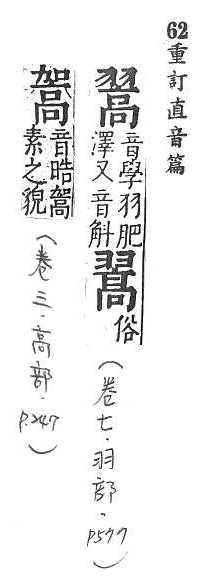 62重訂直音篇
翯音學羽肥
澤又音斛
俗
(卷七·羽部·P577)
音晧
素之貌
(卷三·高部·P.247)